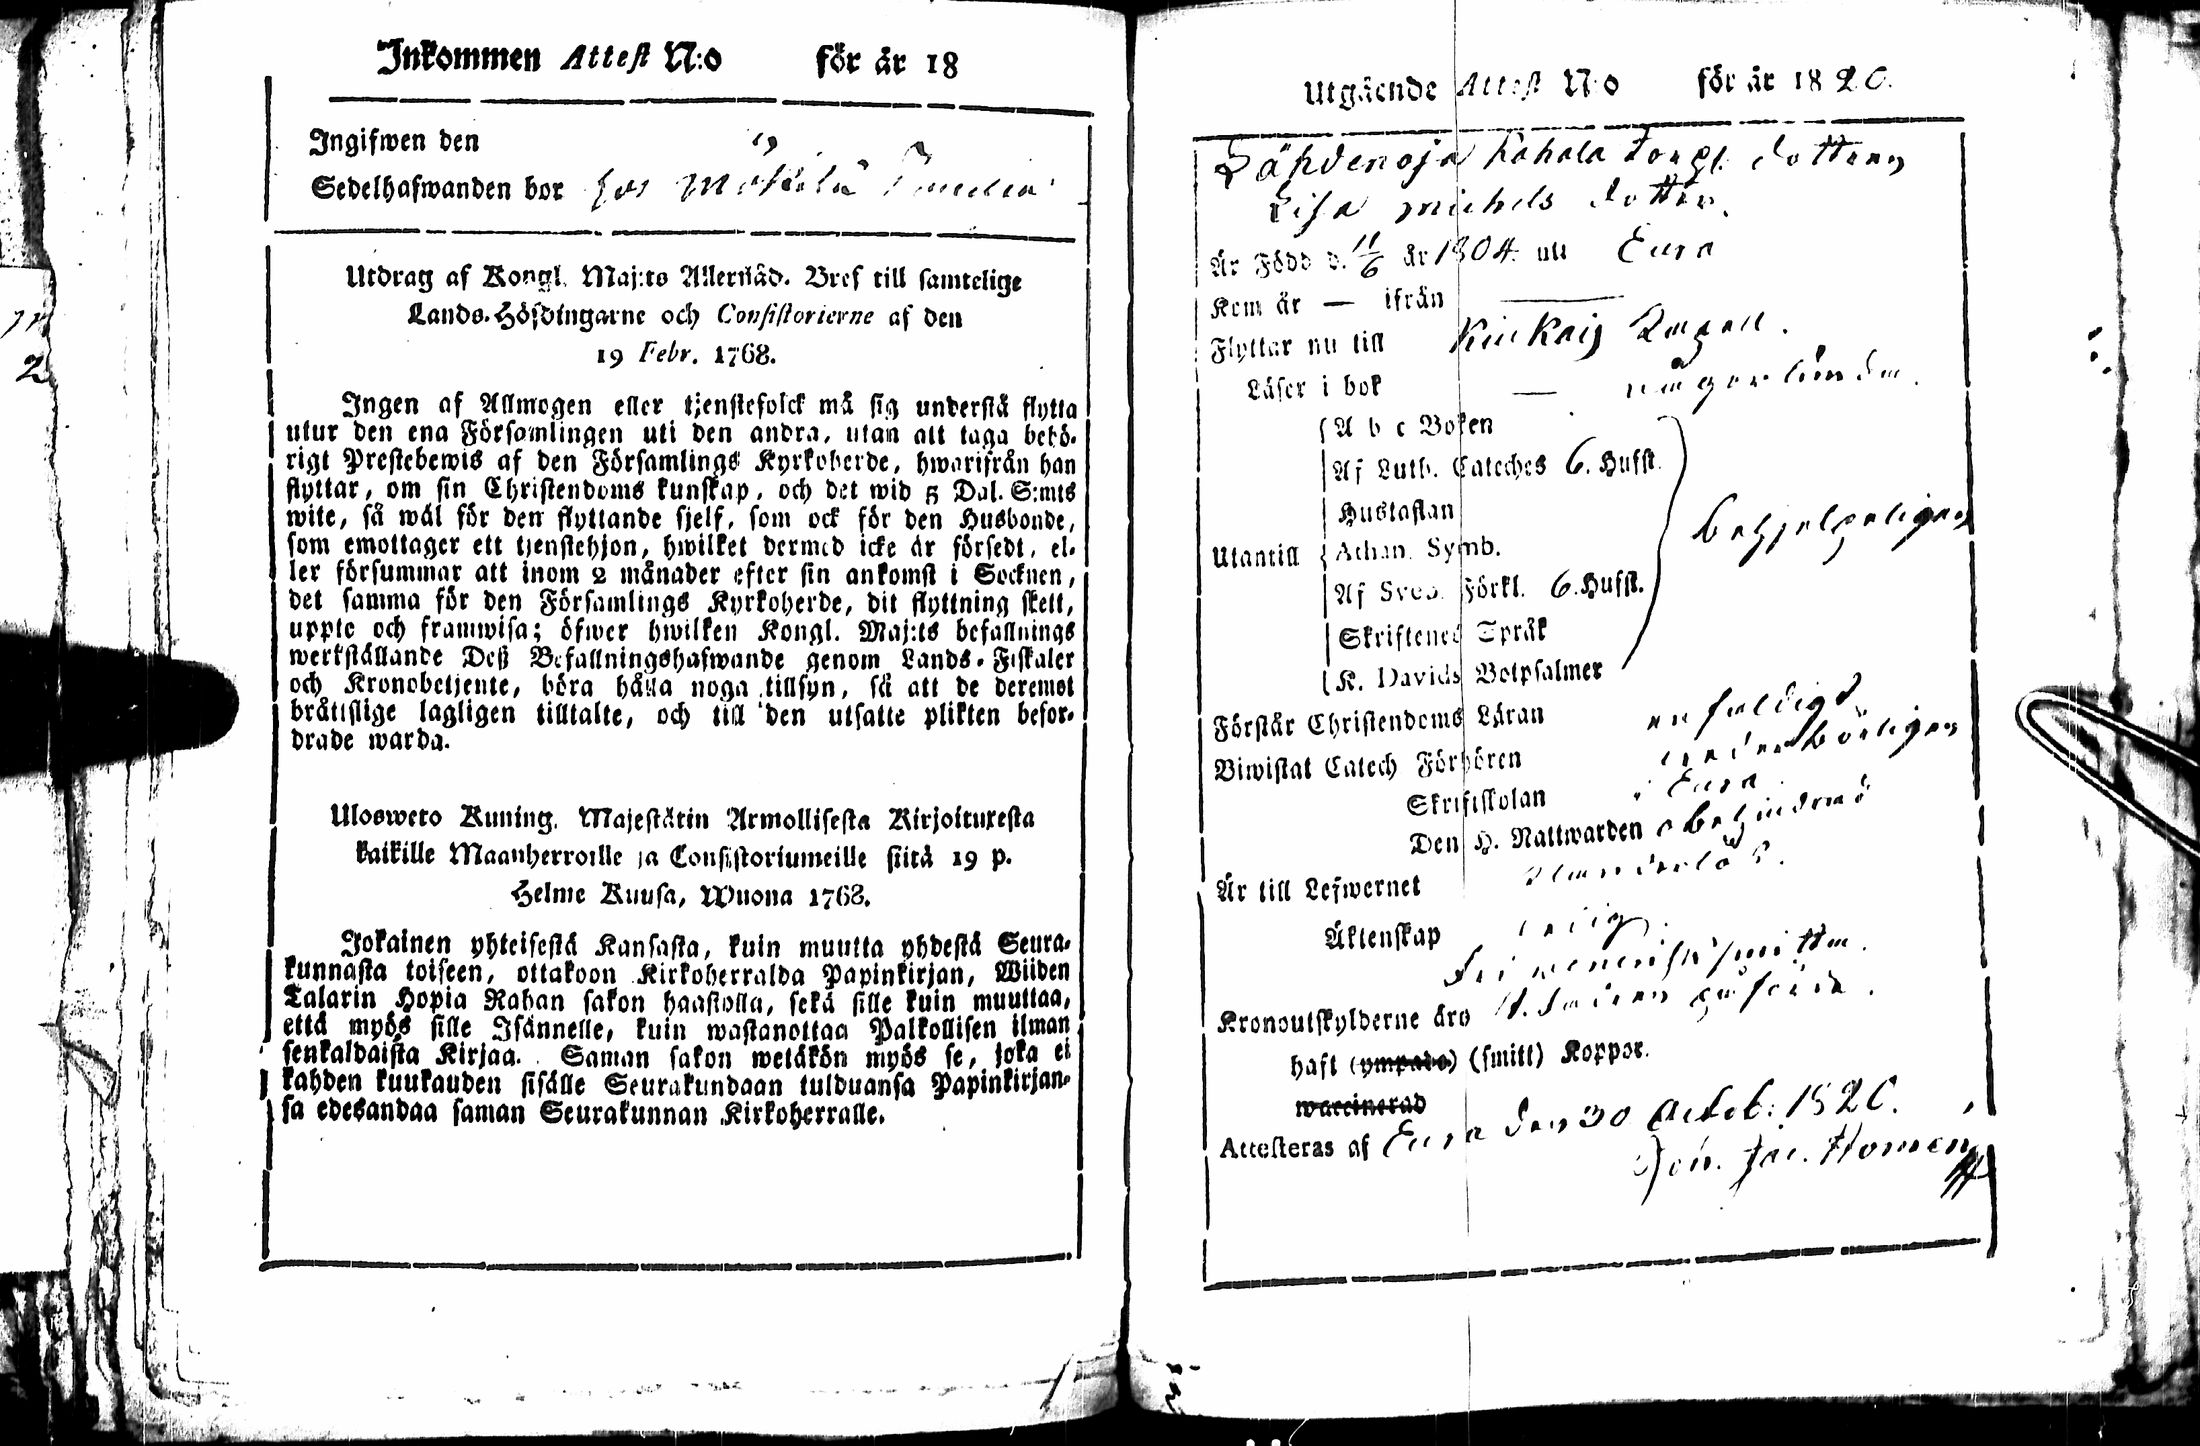 Inkommen Attest N:o för år 18
Ingifwen den
Sedelhafwanden bor hos
Utdrag af Kongl. Maj:ts Allernåd. Bref till samtelige
Lands-Höfdingarne och Consistorierne af den
19 Febr. 1768.
Ingen af Allmogen eller tjenstefolck må sig understå flytta
utur den ena Församlingen uti den andra, utan att taga behö-
rigt Prestebewis af den Församlings Kyrkoherde, hwarifrån han
flyttar, om sin Christendoms kunskap, och det wid 5 Dal. S:mts
wite, så wäl för den flyttande sjelf, som ock för den Husbonde,
som emottager ett tjenstehjon, hwilket dermed icke är försedt, el-
ler försummar att inom 2 månader efter sin ankomst i Socknen,
det samma för den Församlings Kyrkoherde, dit flyttning skett,
uppte och framwisa; öfwer hwilken Kongl. Maj:ts befallnings
werkställande Deß Befallningshafwande genom Lands-Fiskaler
och Kronobetjente, böra hålla noga tillsyn, så att de deremot
bråttslige lagligen tilltalte, och till den utsatte plikten befor-
drade warda.
Ulosweto Kuning. Majestätin Armollisesta Kirjoituxesta
kaikille Maanherroille ja Consistoriumeille siitä 19 p.
Helme Kuusa, Wuona 1768.
Jokainen yhteisestä Kansasta, kuin muutta yhdestä Seura-
kunnasta toiseen, ottakoon Kirkoherralda Papinkirjan, Wiiden
Talarin Hopia Rahan sakon haastolla, sekä sille kuin muuttaa,
että myös sille Isännelle, kuin wastanottaa Palkollisen ilman
senkaldaista Kirjaa. Saman sakon wetäkön myös se, joka ei
kahden kuukauden sisälle Seurakundaan tulduansa Papinkirjan-
sa edesandaa saman Seurakunnan Kirkoherralle.
Utgående Attest N:o för år 1820.
Lähdenoja Kahala torp. dotteren
Lisa Michels dotter.
Är Född d. 11/6 år 1804 uti Eura
Kom år — ifrån —
Flyttar nu till Kiukais
Läser i bok — någorlunda.
A b c Boken
Af Luth. Cateches 6. Hufst.
Hustaflan
Utantill Athan. Symb.
Af Sveb. Förkl. 6. Hufst.
Skriftenes Språk
K. Davids Botpsalmer
behjelpeligen
Förstår Christendoms Läran enfaldigt
Biwistat Catech Förhören
Skriftskolan i Eura
Den H. Nattwarden obehindrad
Är till Lefwernet
Äktenskap ledig.
Kronoutskylderne äro
haft (ympade) (smitt) Koppor.
waccinerad
Attesteras af Eura den 30 Octob: 1820.
Joh. Jac. Homen